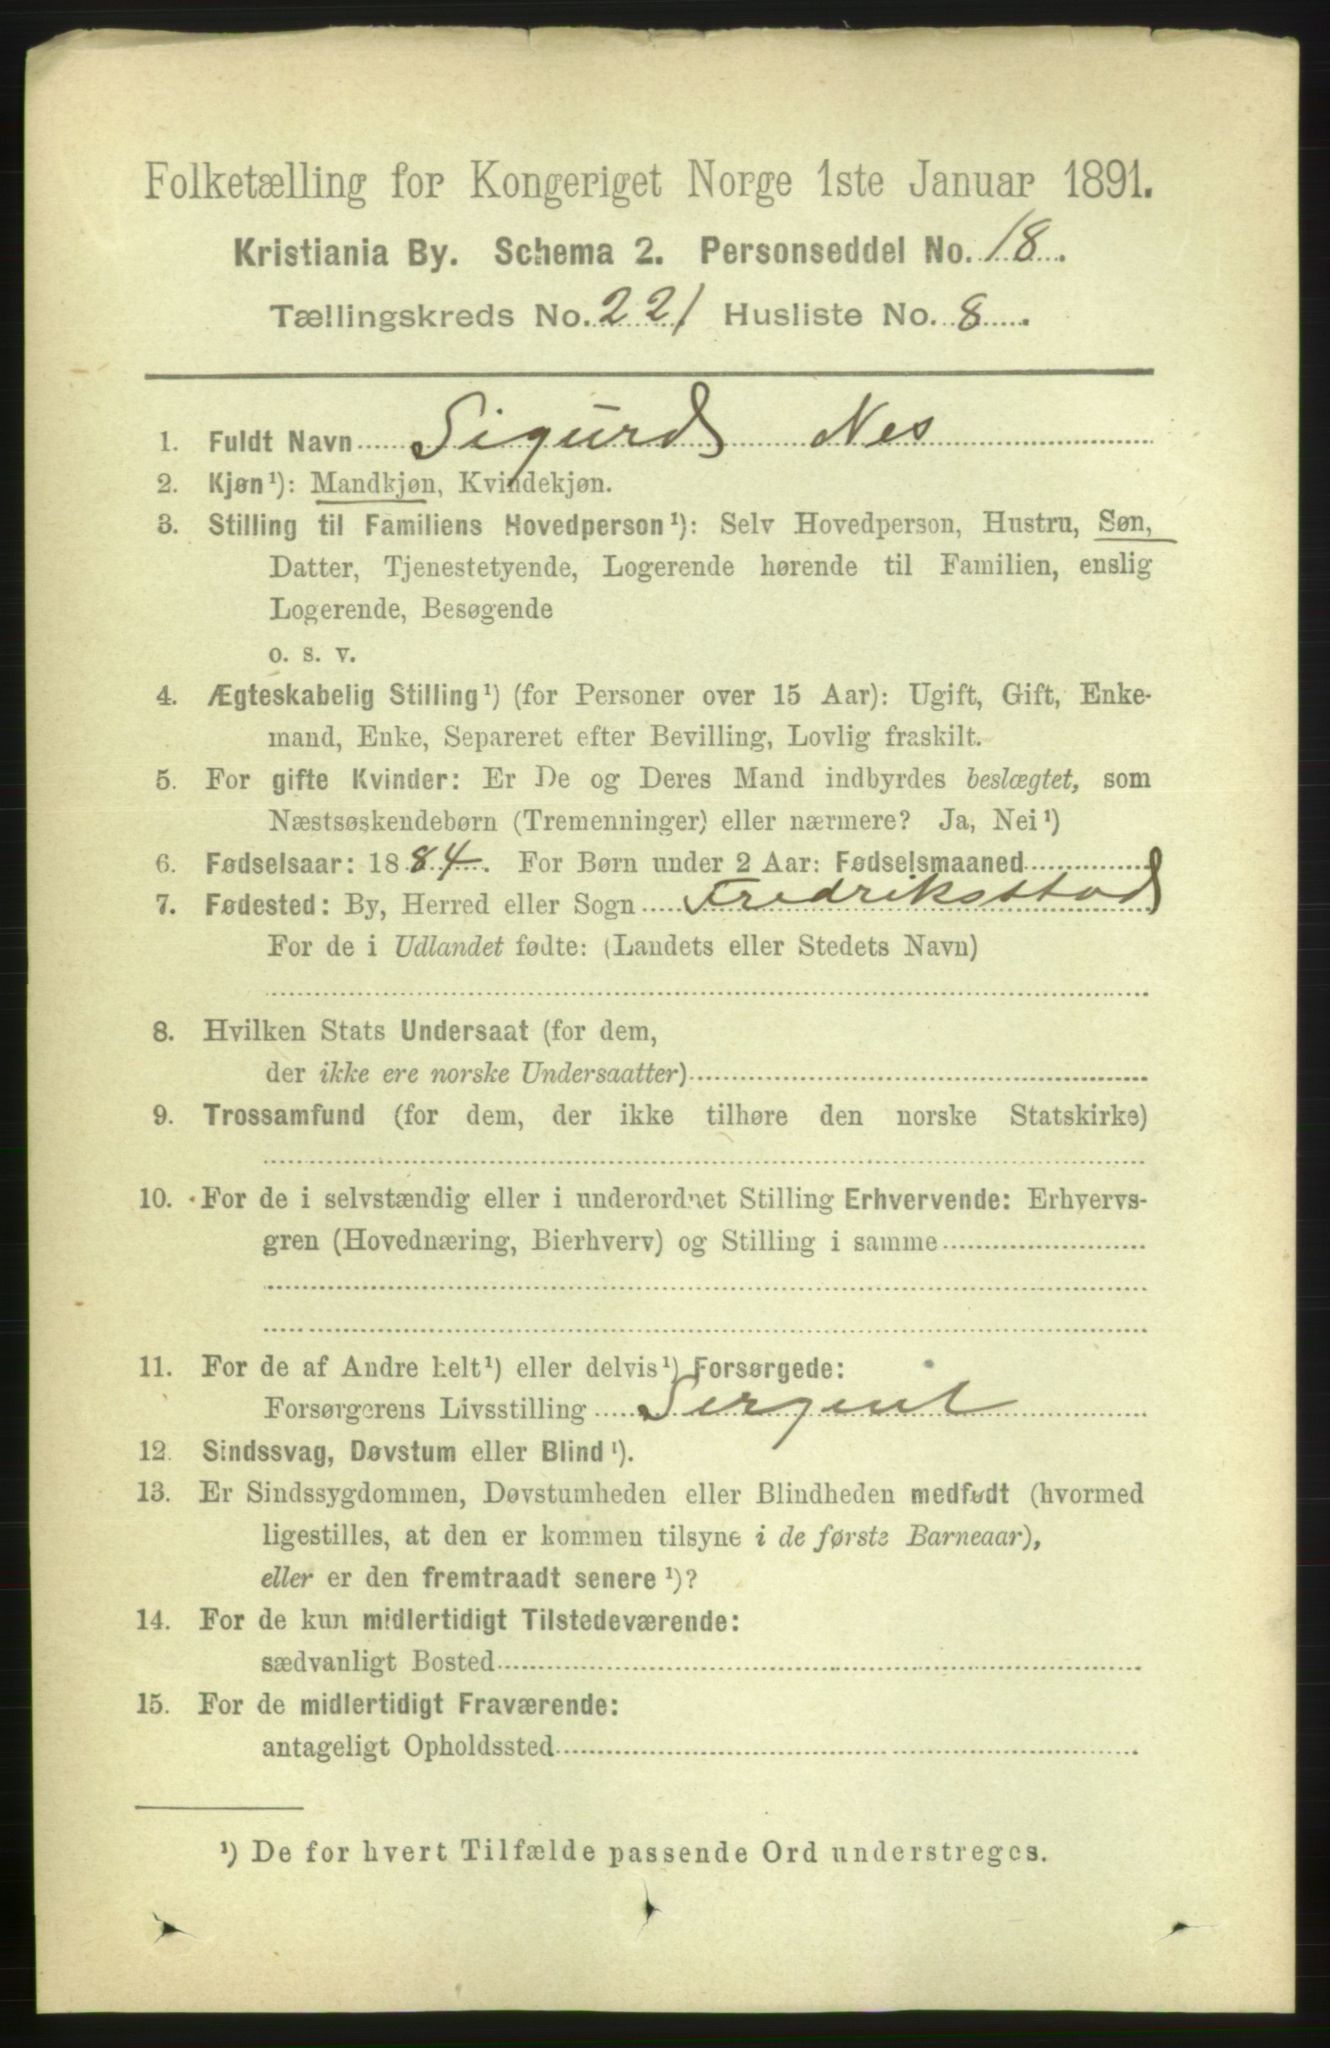 Folketælling for Kongeriget Norge 1ste Januar 1891.
Kristiania By. Schema 2. Personseddel No. 18.
Tællingskreds No. 221 Husliste No. 8.
1. Fuldt Navn Sigurd Nes
2. Kjøn¹): Mandkjøn, Kvindekjøn.
3. Stilling til Familiens Hovedperson¹): Selv Hovedperson, Hustru, Søn,
Datter, Tjenestetyende, Logerende hørende til Familien, enslig
Logerende, Besøgende
o. s. v.
4. Ægteskabelig Stilling¹) (for Personer over 15 Aar): Ugift, Gift, Enke-
mand, Enke, Separeret efter Bevilling, Lovlig fraskilt.
5. For gifte Kvinder: Er De og Deres Mand indbyrdes beslægtet, som
Næstsøskendebørn (Tremenninger) eller nærmere? Ja, Nei¹)
6. Fødselsaar: 1884. For Børn under 2 Aar: Fødselsmaaned
7. Fødested: By, Herred eller Sogn Fredriksstad
For de i Udlandet fødte: (Landets eller Stedets Navn)
8. Hvilken Stats Undersaat (for dem,
der ikke ere norske Undersaatter)
9. Trossamfund (for dem, der ikke tilhøre den norske Statskirke)
10. For de i selvstændig eller i underordnet Stilling Erhvervende: Erhvervs-
gren (Hovednæring, Bierhverv) og Stilling i samme
11. For de af Andre helt¹) eller delvis¹) Forsørgede:
Forsørgerens Livsstilling Sergent
12. Sindssvag, Døvstum eller Blind¹).
13. Er Sindssygdommen, Døvstumheden eller Blindheden medfødt (hvormed
ligestilles, at den er kommen tilsyne i de første Barneaar),
eller er den fremtraadt senere¹)?
14. For de kun midlertidigt Tilstedeværende:
sædvanligt Bosted
15. For de midlertidigt Fraværende:
antageligt Opholdssted
¹) De for hvert Tilfælde passende Ord understreges.